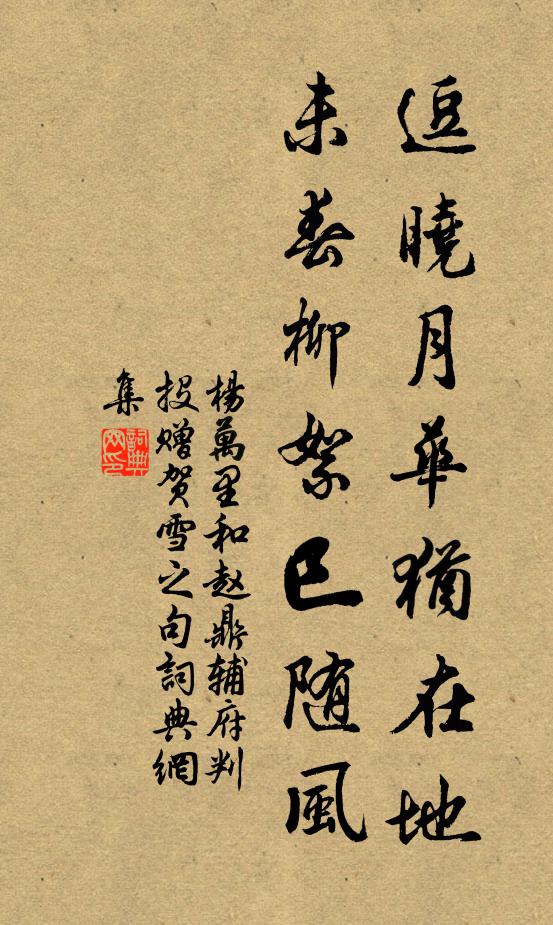 逗曉月華猶在地
未春柳絮已随風
楊萬里和赵鼎辅府判
投赠贺雪之句詞典網
集
詞典网印